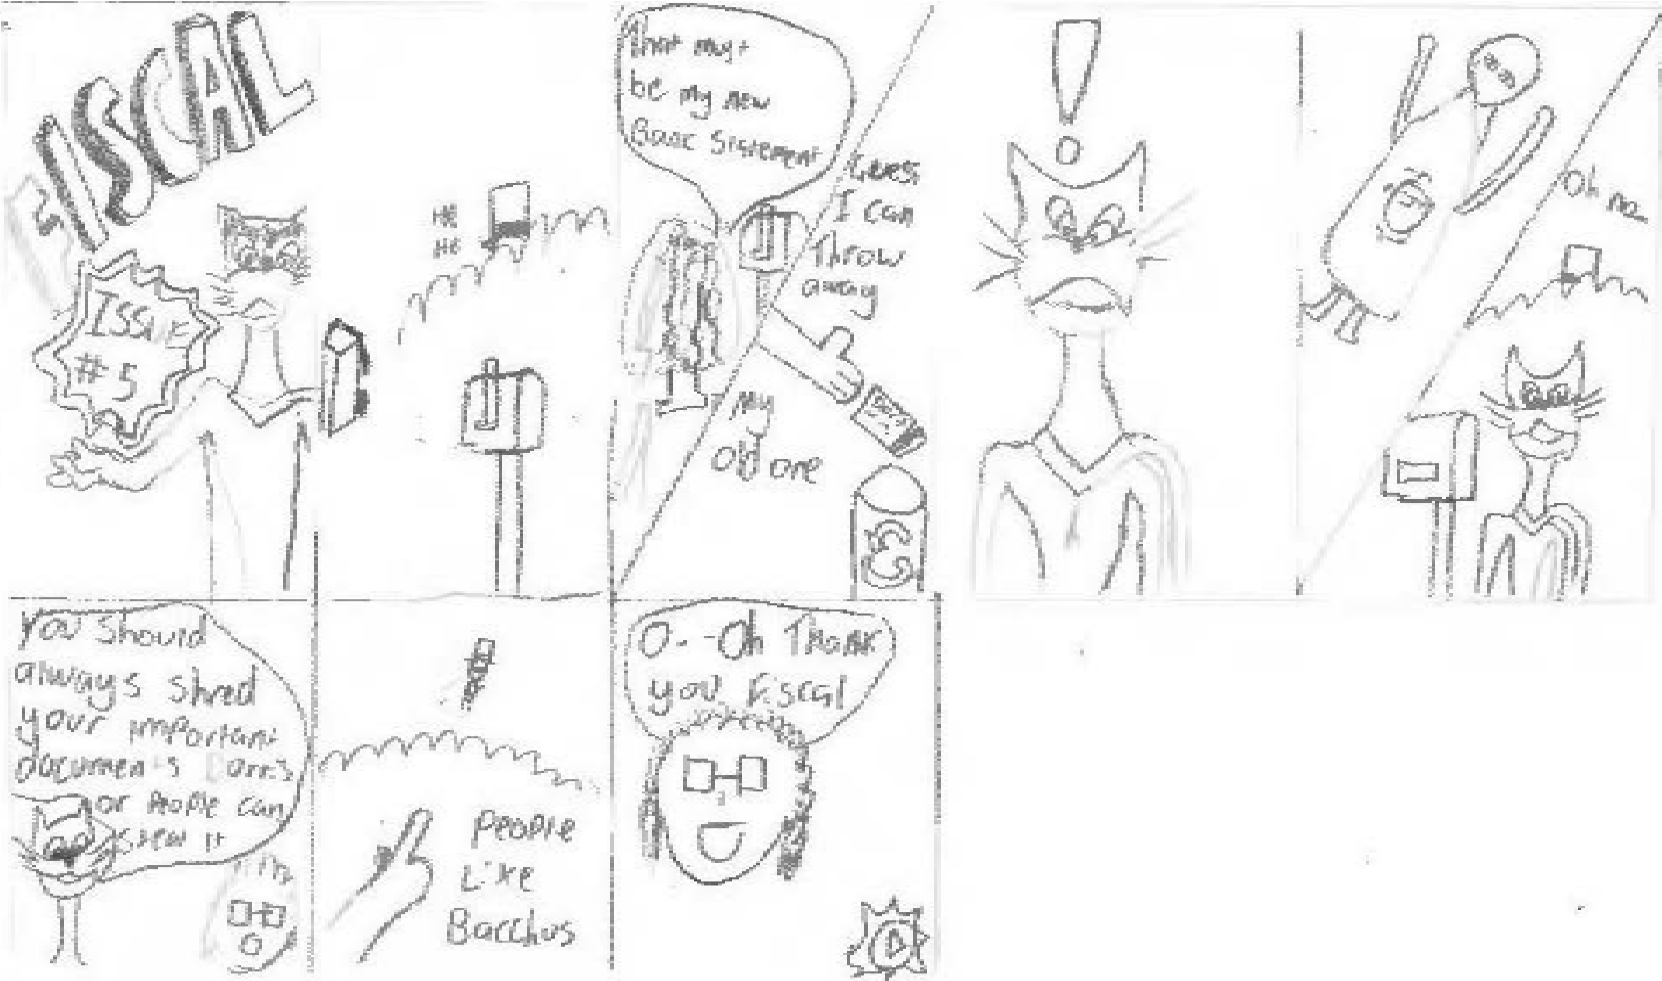 FISCAL
ISSUE
#5
HE
HE
That must
be my new
Bank Statement
Guess
I can
Throw
away
My
old one
!
Oh no
You should
always shred
your important
documents
or People can
steal it
People
Like
Bacchus
O--Oh Thank
you Fiscal